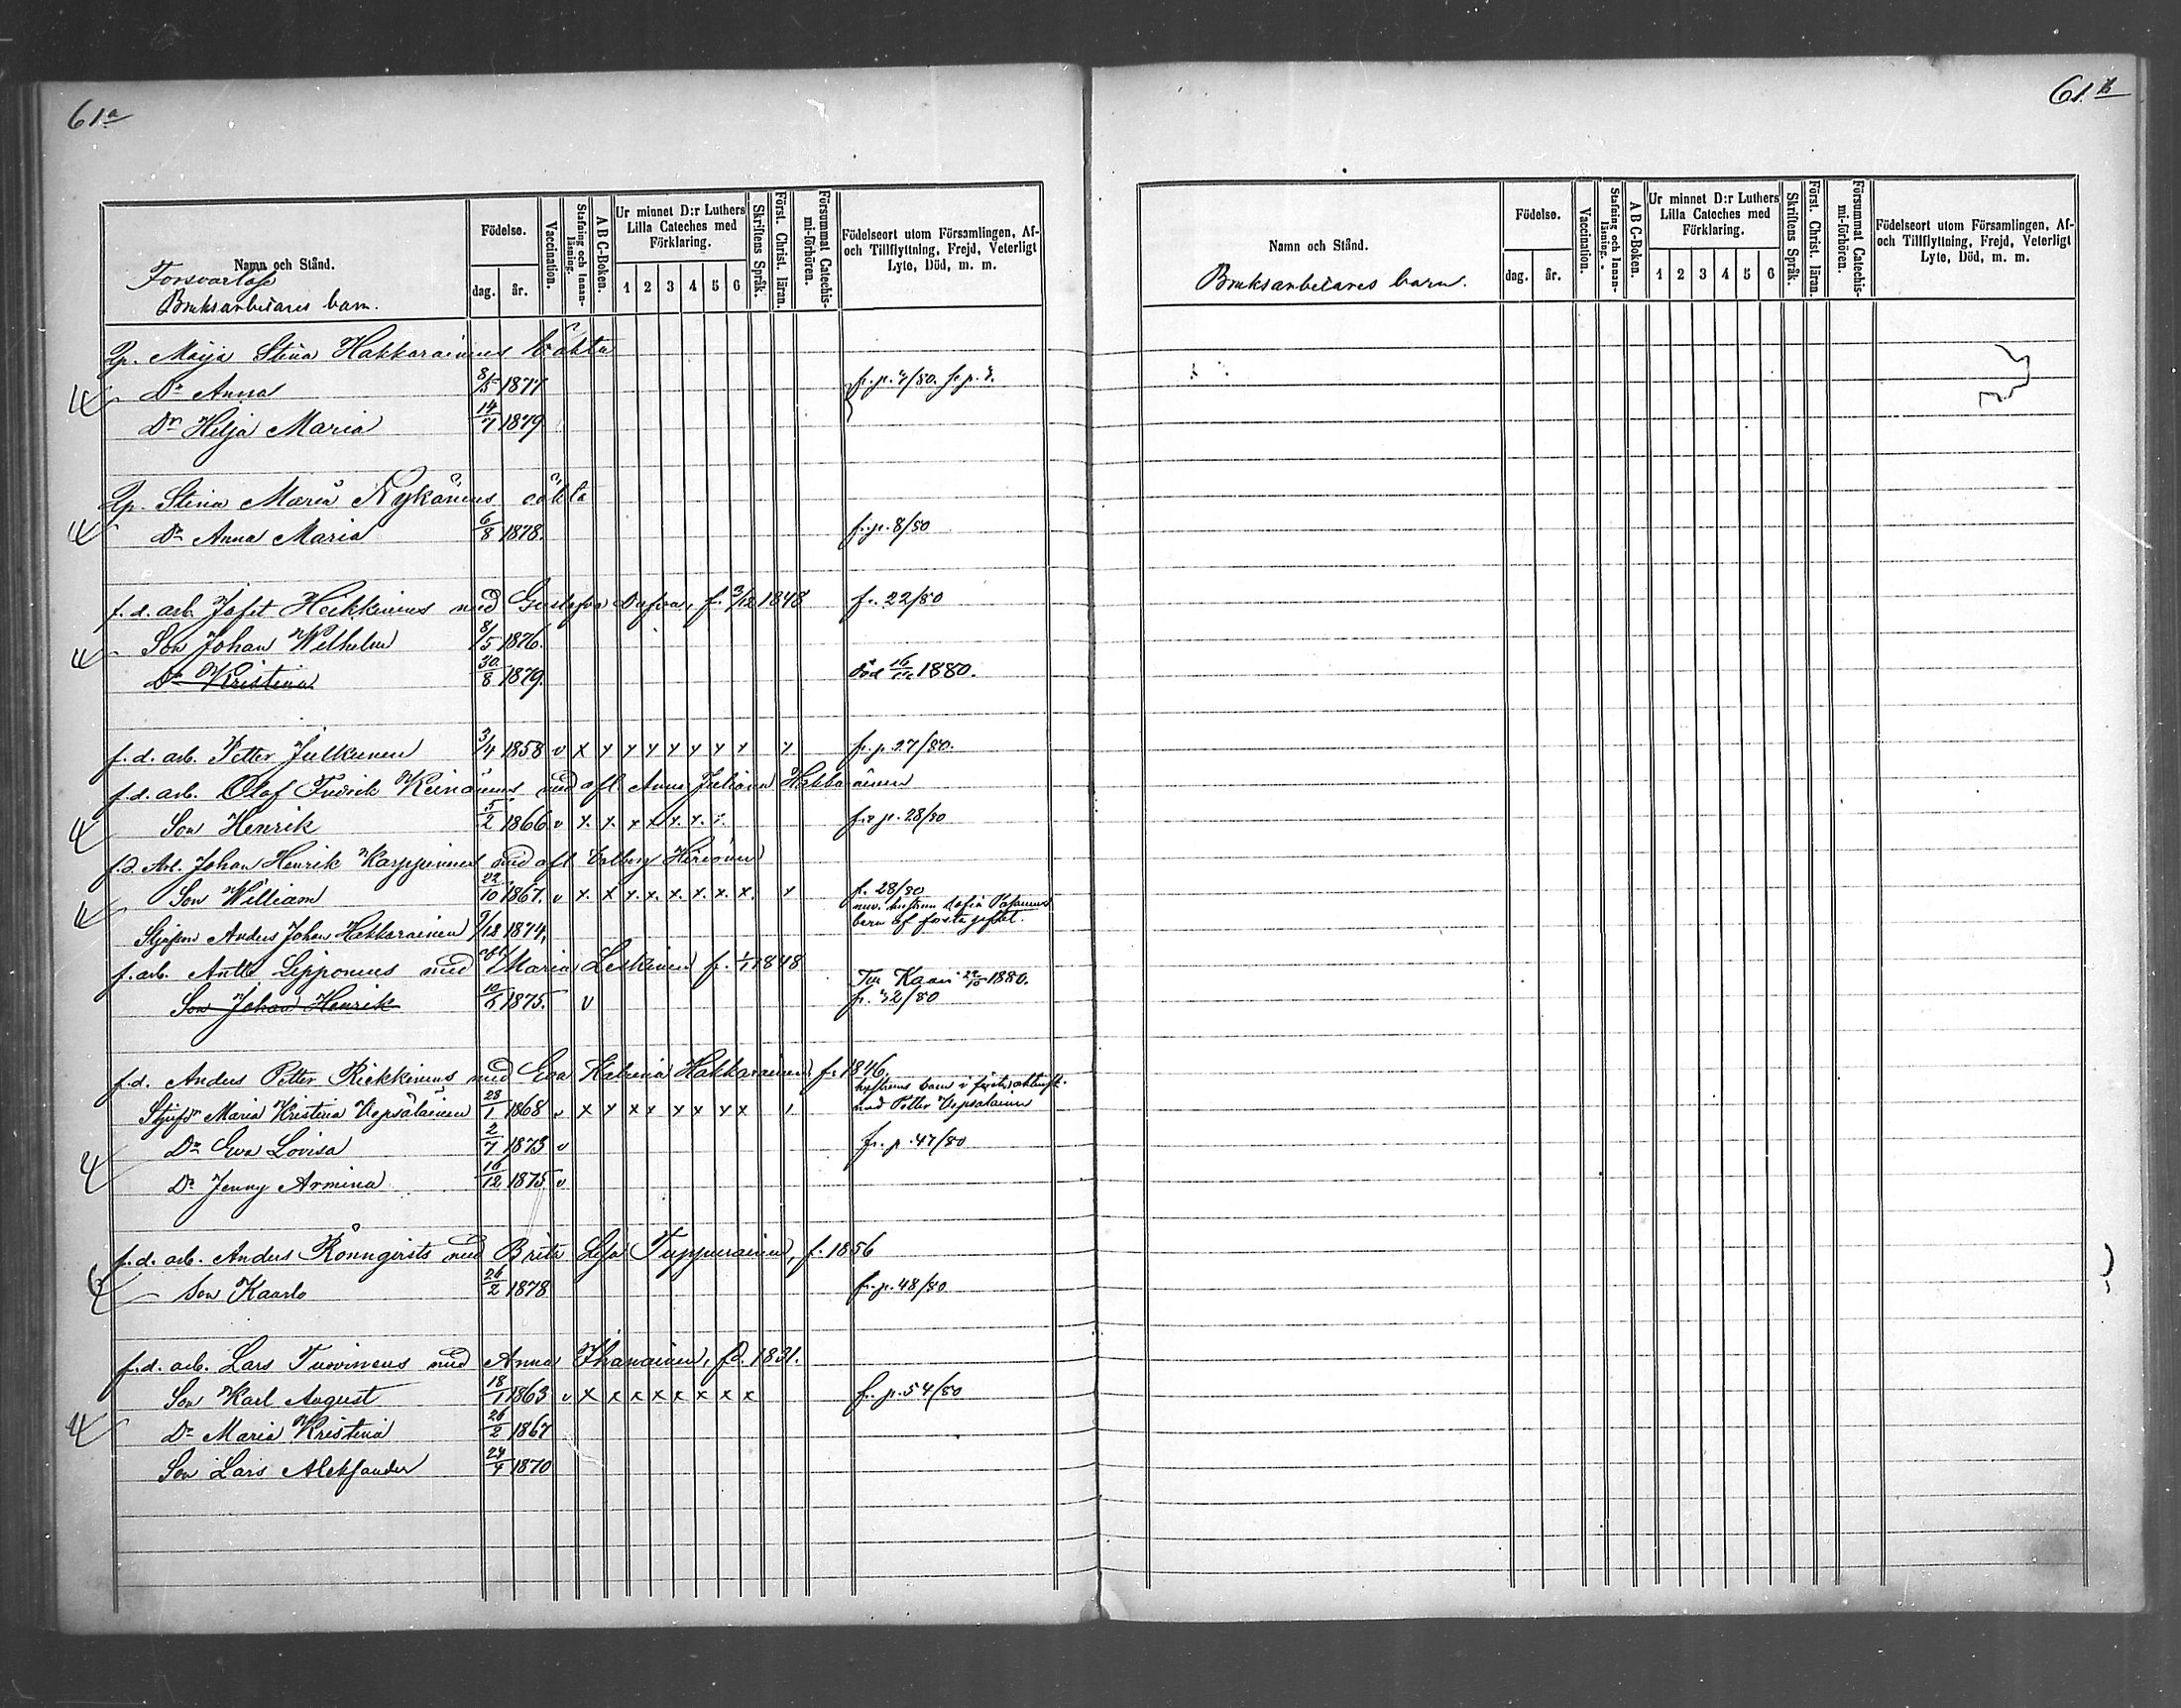 61a
Namn och Stånd.
Födelse.
dag. år.
Vaccination.
Stafning och Innanläsning.
A B C-Boken.
Ur minnet D:r Luthers Lilla Cateches med Förklaring.
1 2 3 4 5 6
Skriftens Språk.
Först. Christ. läran.
Försummat Catechismi-förhören.
Födelseort utom Församlingen, Af- och Tillflyttning, Frejd, Veterligt Lyte, Död, m. m.
Bruksarbetares barn.
Maija Stina Hakkarainens oäkta
Dr Anna 8/5 1877
Dr Hilja Maria 14/7 1879
Stina Maria Nykänens oäkta
Dr Anna Maria 6/8 1878. fr. p. 8/80
f. d. arb. Jafet Heikkinens med f. 3/12 1848 fr. 22/80
Son Johan Wilhelm 8/5 1876.
Dr Kristina 30/8 1879. död 1880.
f. d. arb. Petter Julkunen 3/4 1858 v x x x x x x x x x fr. p 27/80.
f. d. arb. Olof Fredrik Keinänens med afl. Anna Juliana Hakkarainen
Son Henrik 5/2 1866 v x. x. x x x. x. x. fr. p. 28/80
f. d. Arb. Johan Henrik Karppinens med afl. Hirvonen
Son William 22/10 1867. v x. x x. x. x. x. x. x. x fr. 28/80
nuv. hustrun Sofia
barn af första giftet.
Anders Johan Hakkarainen 9/12 1874,
f. arb. Antti Lipponens med afl Maria Leskinen f. 1/1 1848
Till Kaavi 1880.
Son Johan Henrik 1875. v fr. 32/80
f. d. Anders Petter Riekkinens med Eva Katrina Hakkarainen f. 1846.
hustruns barn i
Maria Kristina Vepsäläinen 28/1 1868 v x x x x x x x x med Petter Vepsäläinen
Dr Eva Lovisa 2/7 1873 v fr. p. 47/80
Dr Jenny Armina 16/12 1875 v
f. d. arb. Anders Rönnqvists med Brita Lisa Tuppurainen, f. 1856
Son Kaarlo 26/2 1878 fr. p. 48/80
f. d. arb. Lars Tuovinens med Anna Ihanainen, fd. 1831.
Son Karl August 18/1 1863 v x x x x x x x x fr. p. 54/80
Dr Maria Kristina 26/2 1867
Son Lars Aleksander 24/4 1870
61b
Namn och Stånd.
Födelse.
dag. år.
Vaccination.
Stafning och Innanläsning.
A B C-Boken.
Ur minnet D:r Luthers Lilla Cateches med Förklaring.
1 2 3 4 5 6
Skriftens Språk.
Först. Christ. läran.
Försummat Catechismi-förhören.
Födelseort utom Församlingen, Af- och Tillflyttning, Frejd, Veterligt Lyte, Död, m. m.
Bruksarbetares barn.